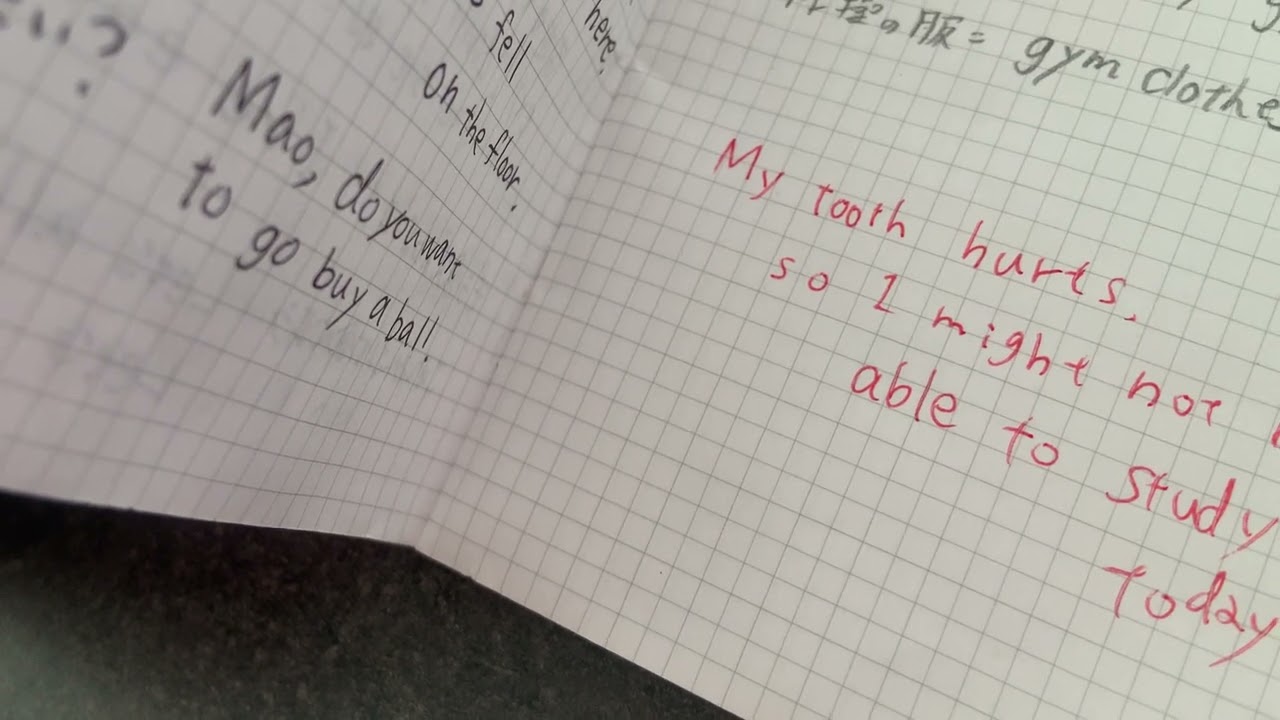 here.
fell
on the floor.
Mao, do you want
to go buy a ball
の服= gym clothe
My tooth hurts.
so I might not
able to study
today